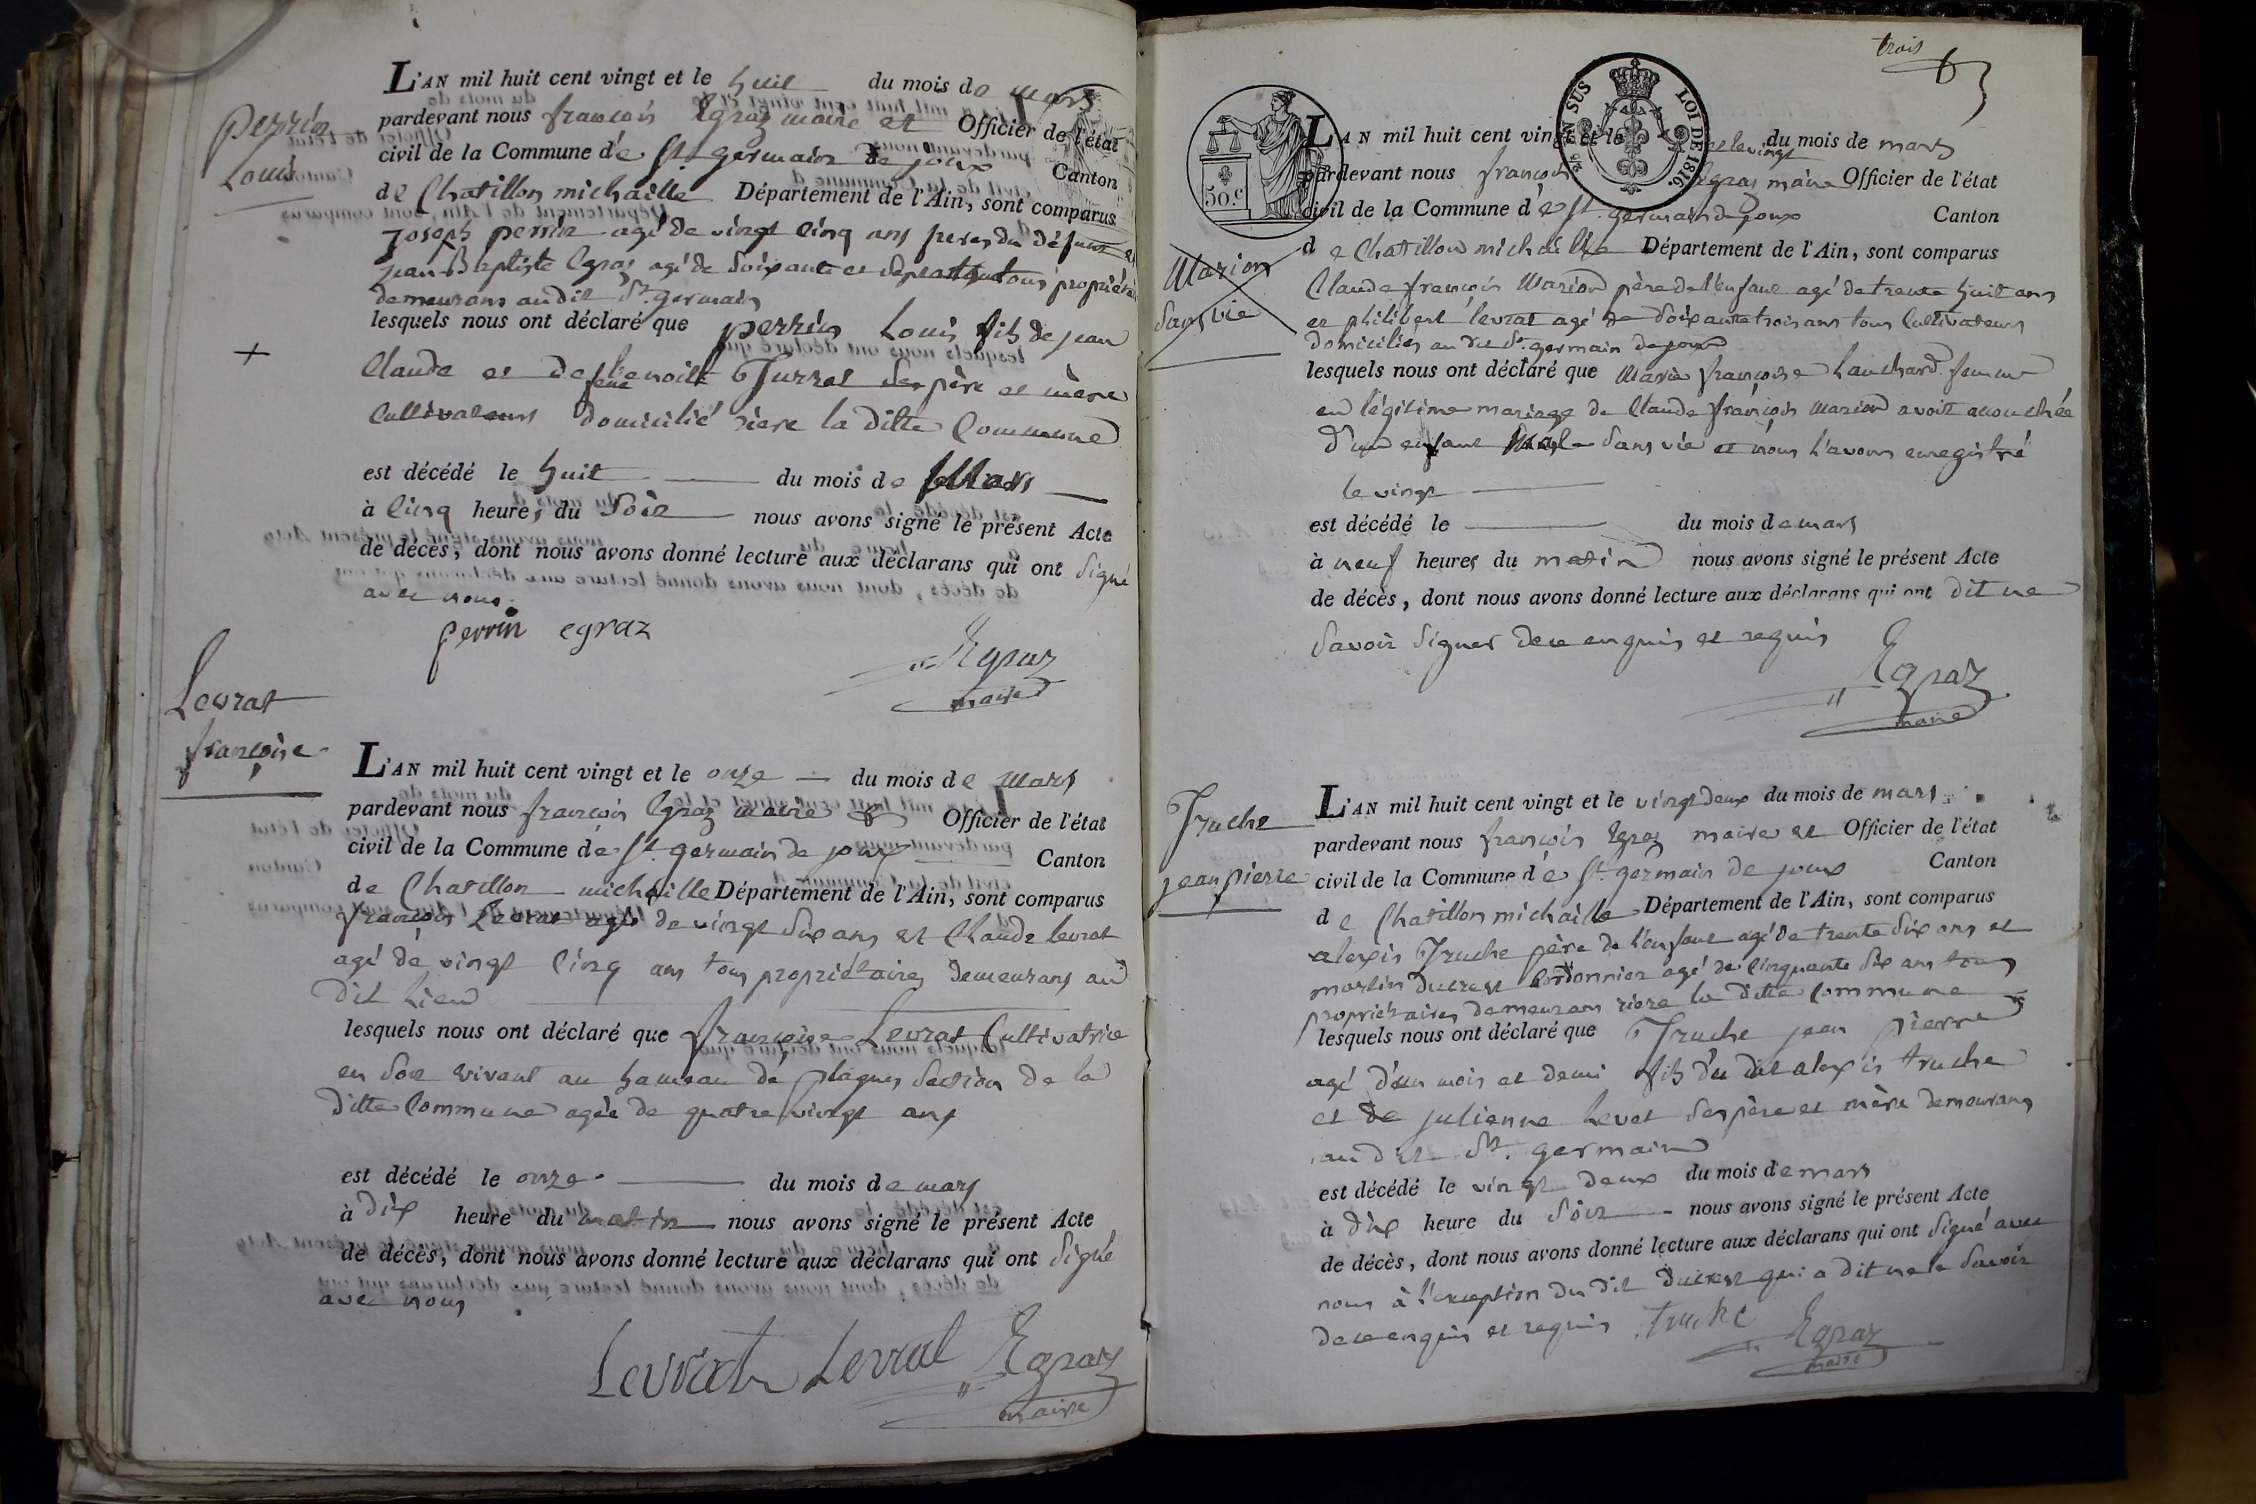 Perrin
Louis
L'AN mil huit cent vingt et le huit du mois de mars
pardevant nous françois Egraz maire et Officier de l'état
civil de la Commune de St. germain de joux Canton
de Chatillon michaille Département de l'Ain, sont comparus
joseph perrin agé de vingt cinq ans du défunt et
jean Baptiste Egraz agé de soixante et tous
demeurans audit St. germain
lesquels nous ont déclaré que perrin Louis fils de jean
Claude et de feue benoite ses père et mère
Cultivateurs domicilié rière la ditte Commune
est décédé le huit du mois de Mars
à Cinq heures du Soir nous avons signé le présent Acte
de décès, dont nous avons donné lecture aux déclarans qui ont signé
avec nous.
perrin egraz
Egraz
maire
Levrat
françoise
L'AN mil huit cent vingt et le onze du mois de Mars
pardevant nous françois Egraz maire et Officier de l'état
civil de la Commune de St. germain de joux Canton
de Chatillon michaille Département de l'Ain, sont comparus
françois Levrat agé de vingt six ans et Claude levrat
agé de vingt Cinq ans tous propriétaires demeurans au
dit lieu
lesquels nous ont déclaré que françoise Levrat Cultivatrice
en son vivant au hameau de plagnes section de la
ditte Commune agée de quatre vingt ans
est décédé le onze du mois de mars
à dix heure du matin nous avons signé le présent Acte
de décès, dont nous avons donné lecture aux déclarans qui ont signé
avec nous
Levrat Levrat Egraz
maire
trois
50.c
EN SUS
LOI DE 1816
Marion
Sans vie
L'AN mil huit cent vingt et le vingt du mois de mars
pardevant nous françois Egraz maire Officier de l'état
civil de la Commune de St. germain de joux Canton
de Chatillon michaille Département de l'Ain, sont comparus
Claude françois Marion père de l'enfant agé de trente huit ans
et philibert levrat agé de soixante trois ans tous Cultivateurs
domiciliés au dit St. germain de joux
lesquels nous ont déclaré que Marie françoise femme
en légitime mariage de Claude françois Marion avoit accouchée
d'un enfant sans vie et nous l'avons enregistré
le vingt
est décédé le du mois de mars
à neuf heures du matin nous avons signé le présent Acte
de décès, dont nous avons donné lecture aux déclarans qui ont dit ne
savoir signer de ce enquis et requis
Egraz
maire
Truche
jean pierre
L'AN mil huit cent vingt et le vingt deux du mois de mars
pardevant nous françois Egraz maire et Officier de l'état
civil de la Commune de St. germain de joux Canton
de Chatillon michaille Département de l'Ain, sont comparus
alexis Truche père de l'enfant agé de trente six ans et
martin ducrest Cordonnier agé de Cinquante six ans tous
propriétaires demeurans rière la ditte Commune
lesquels nous ont déclaré que Truche jean pierre
agé d'un mois et demi fils du dit alexis truche
et de julienne levet ses père et mère demeurans
au dit St. germain
est décédé le vingt deux du mois de mars
à dix heure du soir nous avons signé le présent Acte
de décès, dont nous avons donné lecture aux déclarans qui ont signé avec
nous à l'exception du dit ducrest qui a dit ne le savoir
de ce enquis et requis truche Egraz
maire